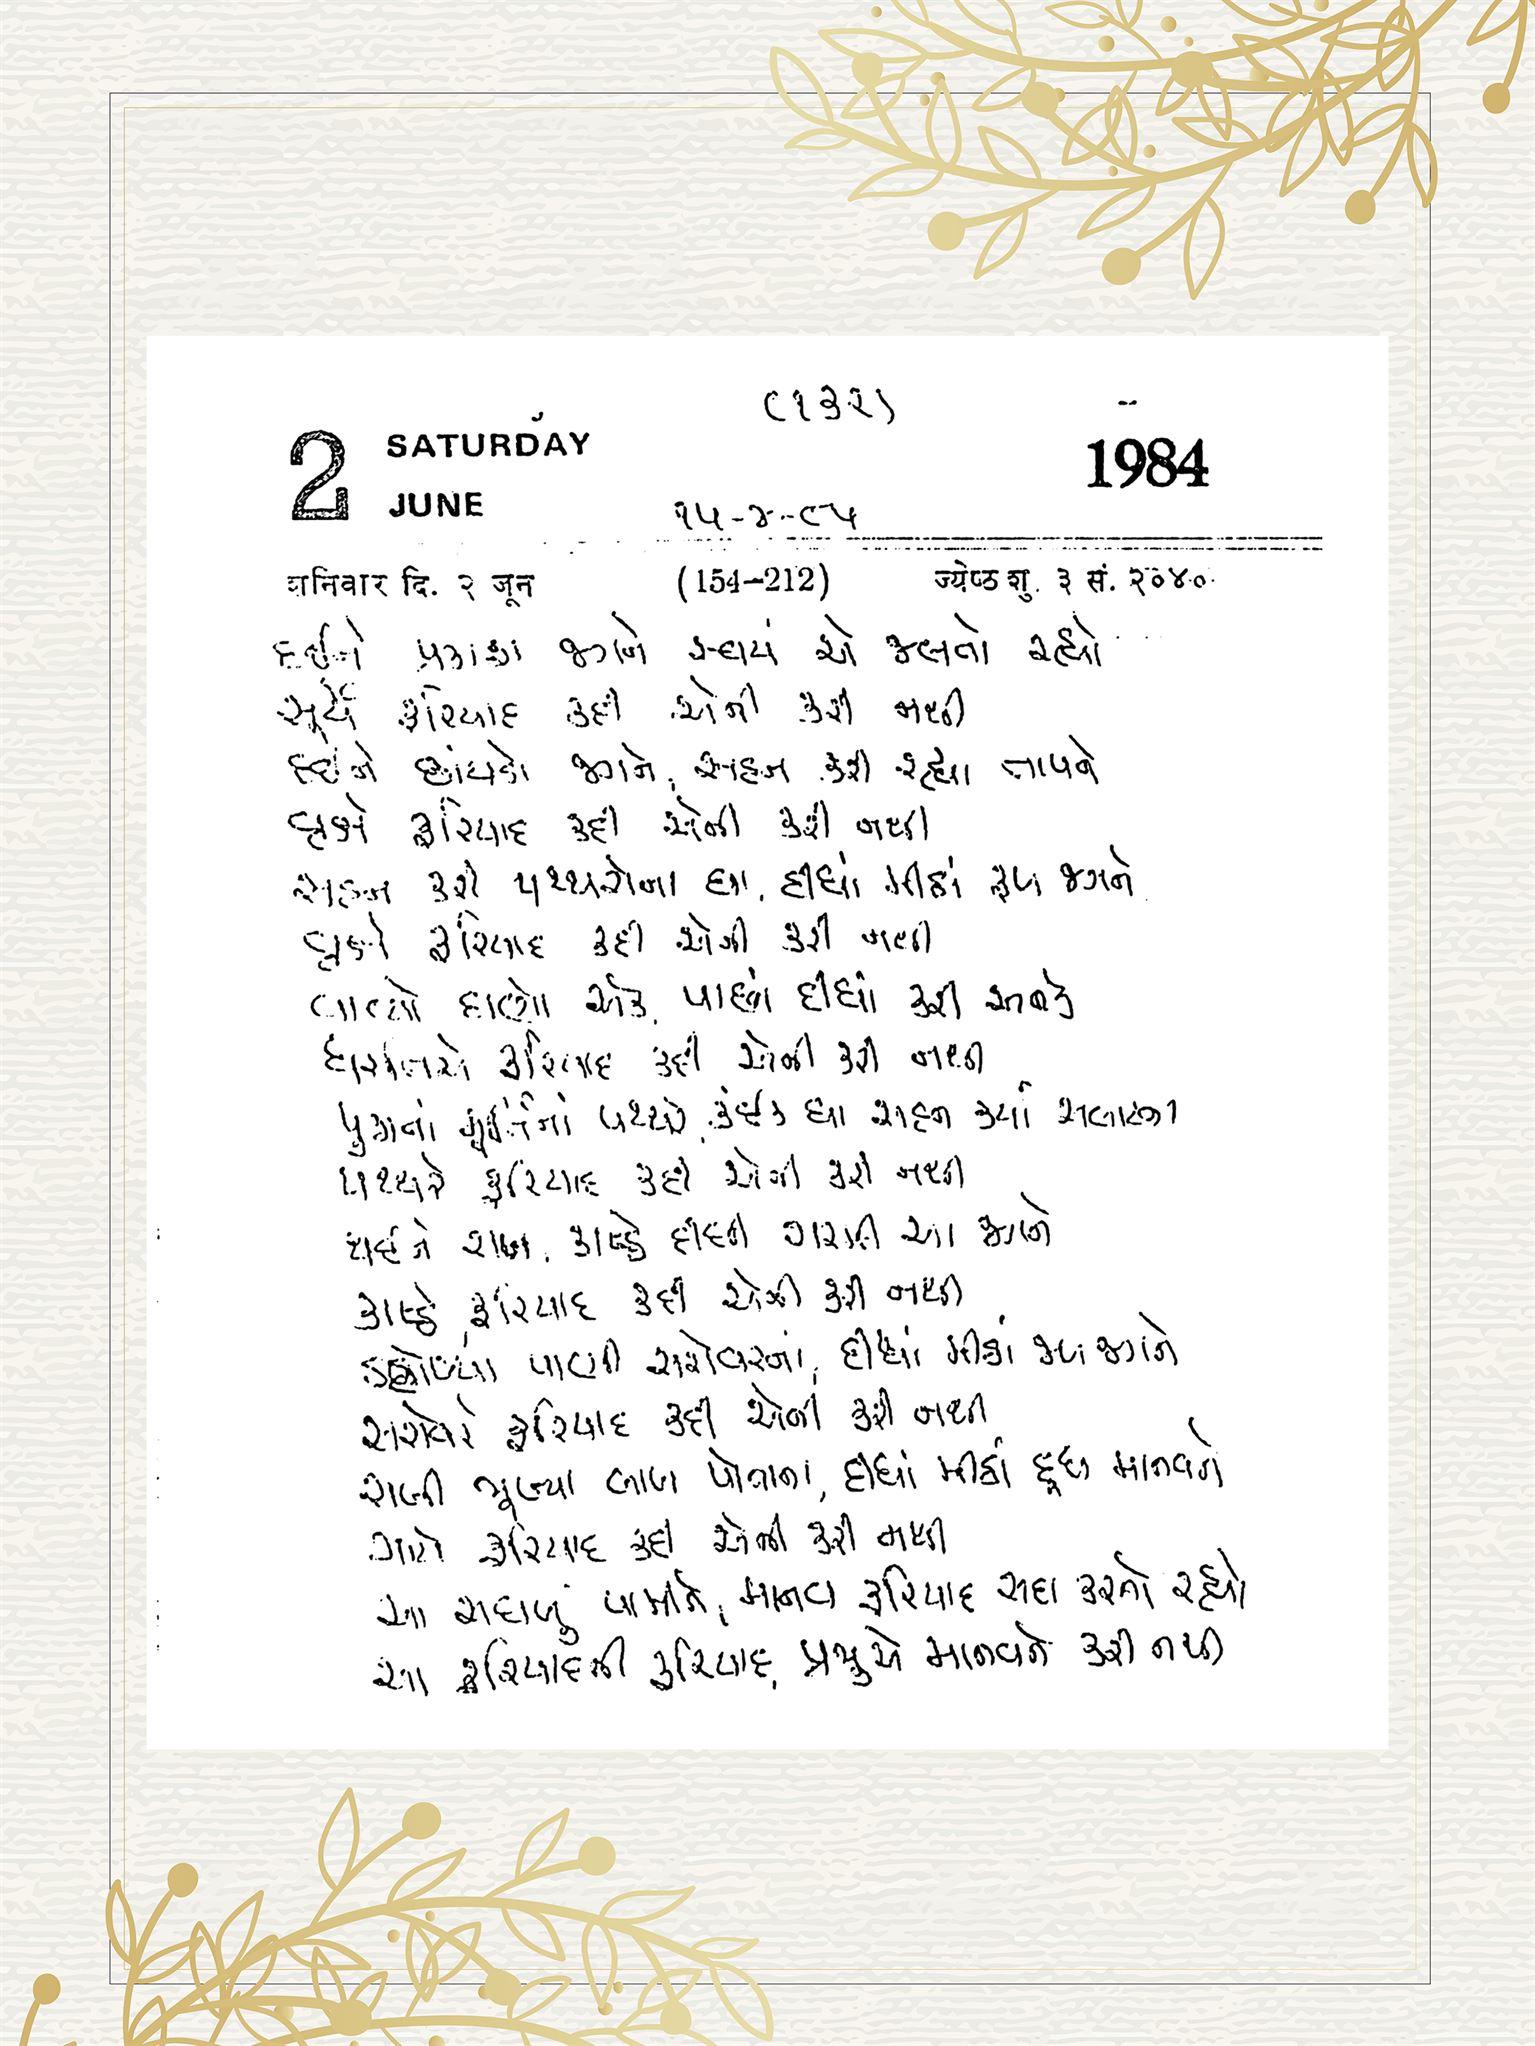 (૧૩૨)
2 SATURDAY
JUNE
1984
૧૫-૪-૮૫
शनिवार दि. २ जून (154-212) ज्येष्ठ शु. ३ सं. २०४०
દઈને પ્રકાશ જગને સ્વયં એ જલતો રહ્યો
સૂર્યે ફરિયાદ કદી એની કરી નથી
દઈને છાંયડો જગને, સહન કરી રહ્યા તાપને
વૃક્ષે ફરિયાદ કદી એની કરી નથી
સહન કરી પથ્થરોના ઘા, દીધાં મીઠાં ફળ જગને
વૃક્ષે ફરિયાદ કદી એની કરી નથી
વાવ્યો દાણો એક, પાછાં દીધાં કરી અનેક
ધરતિએ ફરિયાદ કદી એની કરી નથી
પુજાનાં મૂર્તિનાં પથ્થરે, કંઈક ઘા સહન કર્યા સલાટના
પથ્થરે ફરિયાદ કદી એની કરી નથી
થઈને રાખ, કાષ્ઠે દીધી ગરમી આ જગને
કાષ્ઠે, ફરિયાદ કદી એની કરી નથી
ડહોળ્યા પાણી સરોવરનાં, દીધાં મીઠાં જળ જગને
સરોવરે ફરિયાદ કદી એની કરી નથી
રાખી ભૂખ્યા બાળ પોતાના, દીધાં મીઠાં દૂધ માનવને
ગાયે ફરિયાદ કદી એની કરી નથી
આ સઘળું પામીને, માનવ ફરિયાદ સદા કરતો રહ્યો
આ ફરિયાદની ફરિયાદ, પ્રભુએ માનવને કરી નથી